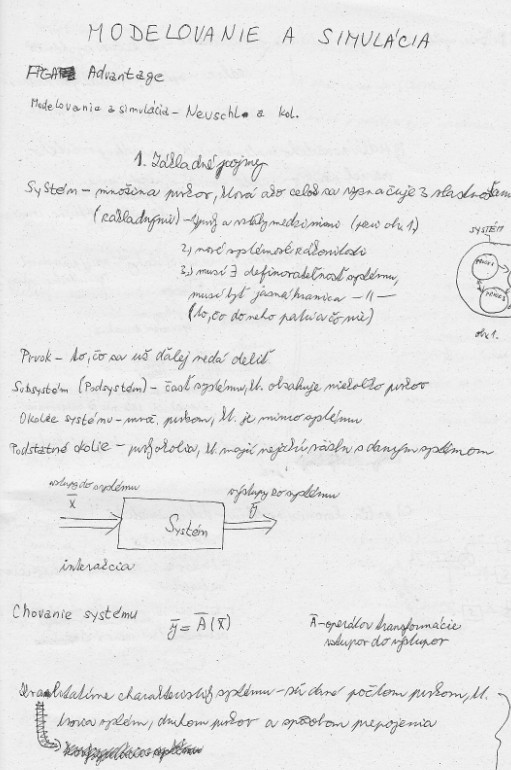 MODELOVANIE A SIMULÁCIA
FPGA Advantage
Modelovanie a simulácia – Neuschl a kol.
1. Základné pojmy
Systém – množina prvkov, ktorá ako celok sa vyznačuje 3 vlastnosťami
(základnými) – prvky a vzťahy medzi nimi (obr. 1)
2.) nové systémové zákonitosti
3.) musí ∃ definovateľnosť systému,
musí byť jasná hranica – 11 –
(to, čo do neho patrí a čo nie)
SYSTÉM
PRVOK 1
PRVOK 2
obr. 1.
Prvok – to, čo sa už ďalej nedá deliť
Subsystém (Podsystém) – časť systému, kt. obsahuje niekoľko prvkov
Okolie systému – prvkov, kt. je mimo systému
Podstatné okolie – prvky okolia, kt. majú nejakú väzbu s daným systémom
vstupy do systému
x̅
Systém
výstupy zo systému
y̅
interakcia
Chovanie systému
y̅ = A̅ (x̅)
A̅ – operátor transformácie
vstupov do výstupov
charakteristiky systému – sú dané počtom prvkov, kt.
tvoria systém, druhom prvkov a spôsobom prepojenia